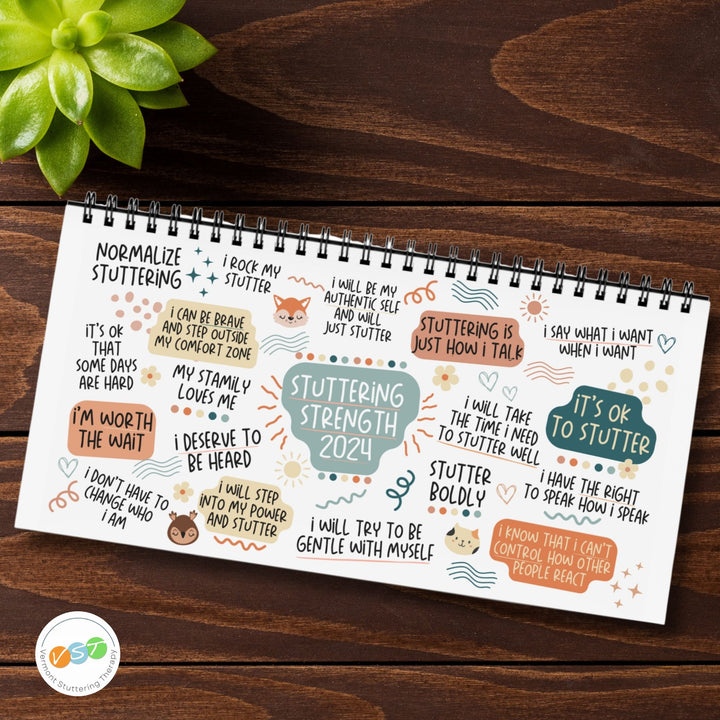 NORMALIZE
STUTTERING
i ROCK MY
STUTTER
i WILL BE MY
AUTHENTIC SELF
AND WILL
JUST STUTTER
STUTTERING iS
JUST HOW i TALK
i SAY WHAT i WANT
WHEN i WANT
i CAN BE BRAVE
AND STEP OUTSIDE
MY COMFORT ZONE
iT'S OK
THAT
SOME DAYS
ARE HARD
MY STAMILY
LOVES ME
STUTTERING
STRENGTH
2024
i WILL TAKE
THE TIME i NEED
TO STUTTER WELL
iT'S OK
TO STUTTER
i'M WORTH
THE WAIT
i DESERVE TO
BE HEARD
STUTTER
BOLDLY
i HAVE THE RIGHT
TO SPEAK HOW i SPEAK
i DON'T HAVE TO
CHANGE WHO
i AM
i WILL STEP
INTO MY POWER
AND STUTTER
i WILL TRY TO BE
GENTLE WITH MYSELF
i KNOW THAT i CAN'T
CONTROL HOW OTHER
PEOPLE REACT
VST
Vermont Stuttering Therapy